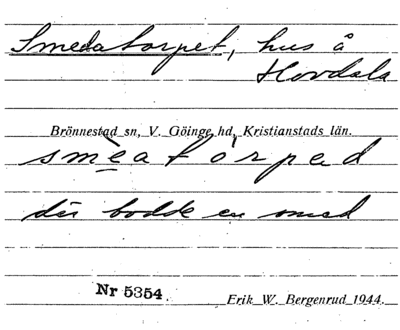 Smedatorpet, hus å
Hovdala
Brönnestad sn, V. Göinge hd, Kristianstads län.
smèatórped
där bodde en smed
Nr 5354.
Erik W. Bergenrud 1944.